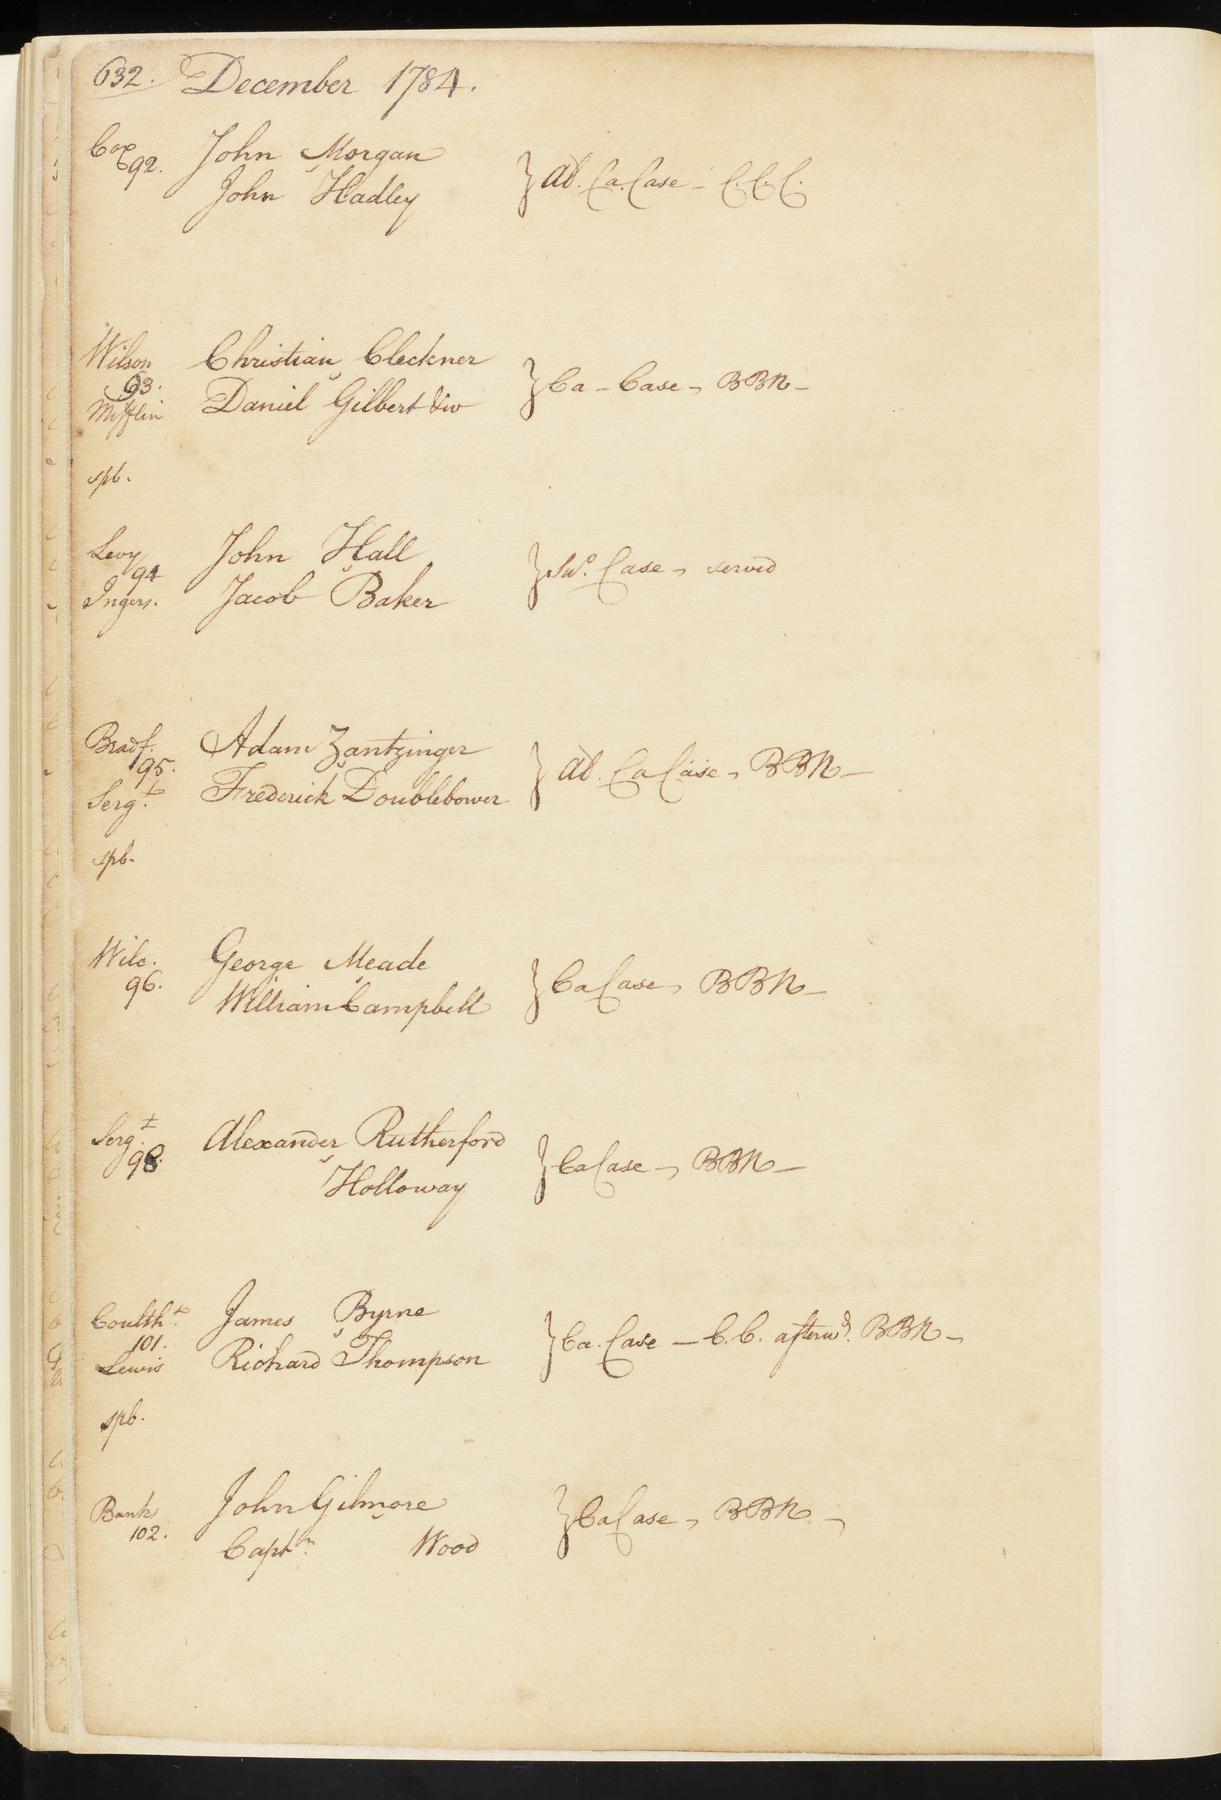 632. December 1784.
Cox 92. John Morgan
v
John Hadley } Al. Ca. Case – C.C.C.
Wilson Christian Cleckner
93. v } Ca – Case, BBN –
Mifflin Daniel Gilbert &w
spb.
Levy John Hall
94 v } Su.o Case, served
Ingers. Jacob Baker
Bradf. Adam Zantzinger
95. v } Al. Ca Case, BBN –
Serg.t Frederick Doublebower
spb.
Wilc. George Meade
96. v } Ca Case, BBN –
William Campbell
Serg.t Alexander Rutherford
98. v } Ca Case –, BBN –
Holloway
Coulth.t James Byrne
101. v } Ca. Case – C.C. afterw.d BBN –
Lewis Richard Thompson
spb.
Banks John Gilmore
102. v } Ca Case, BBN –,
Capt.n Wood